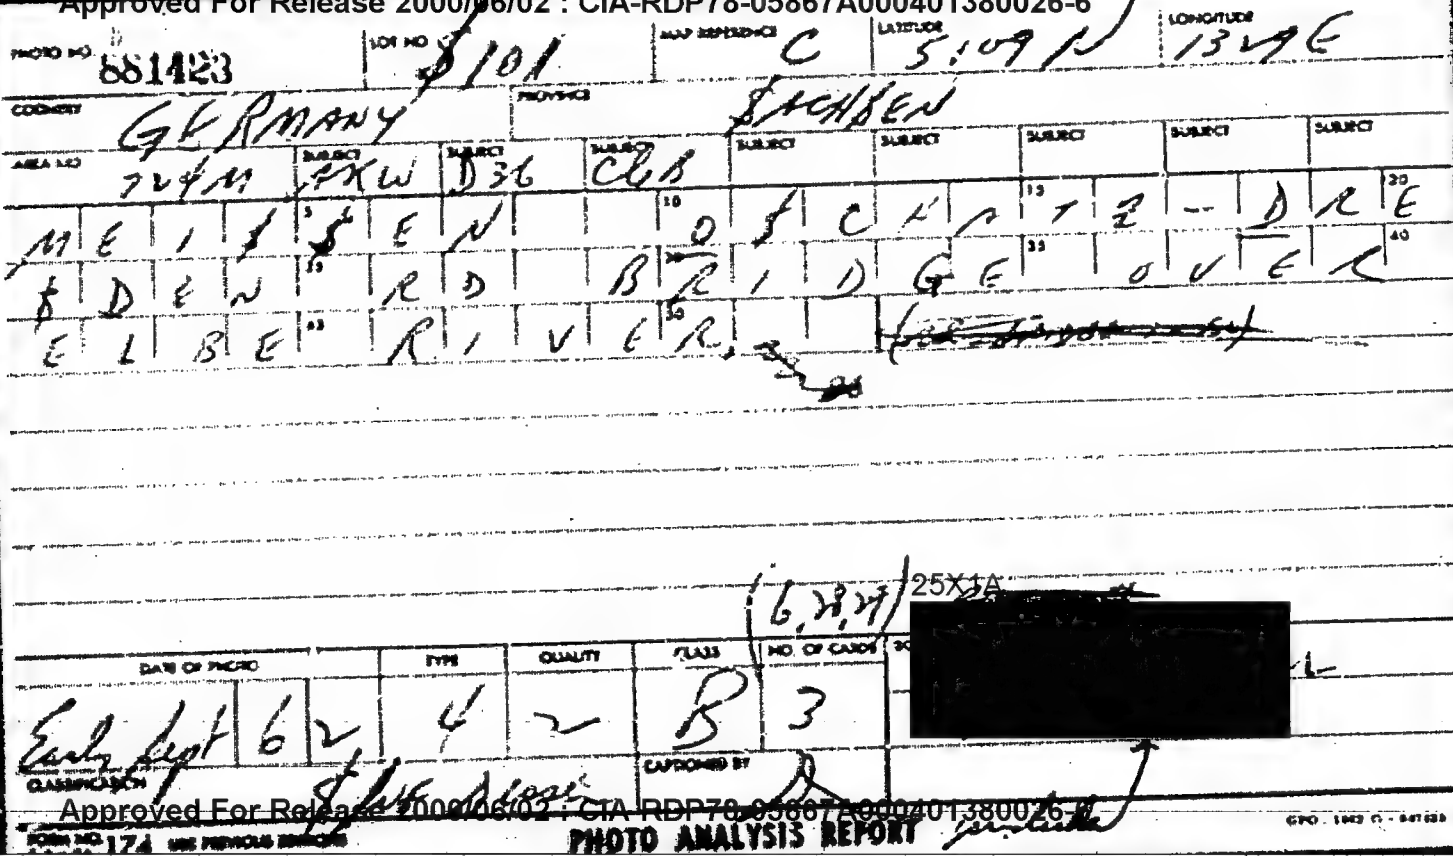 Approved For Release 2000/06/02 : CIA-RDP78-05867A000401380026-6
PHOTO NO. 881423 LOT NO $101 MAP REFERENCE C LATITUDE 5109 N LONGITUDE 1329 E
COUNTRY GERMANY PROVINCE $ACH$EN
AREA NO 724M SUBJECT SUBJECT D36 SUBJECT C6B SUBJECT SUBJECT SUBJECT SUBJECT SUBJECT
MEI$$EN O$CHATZ-DRE
$DEN RD BRIDGE OVER
ELBE RIVER.
(6,28,29) 25X1A
DATE OF PHOTO TYPE QUALITY CLASS NO. OF CARDS
Early Sept 62 4 2 B 3
CLASSIFICATION CAPTIONED BY
Approved For Release 2000/06/02 : CIA-RDP78-05867A000401380026-6
FORM NO. 174 USE PREVIOUS EDITIONS PHOTO ANALYSIS REPORT